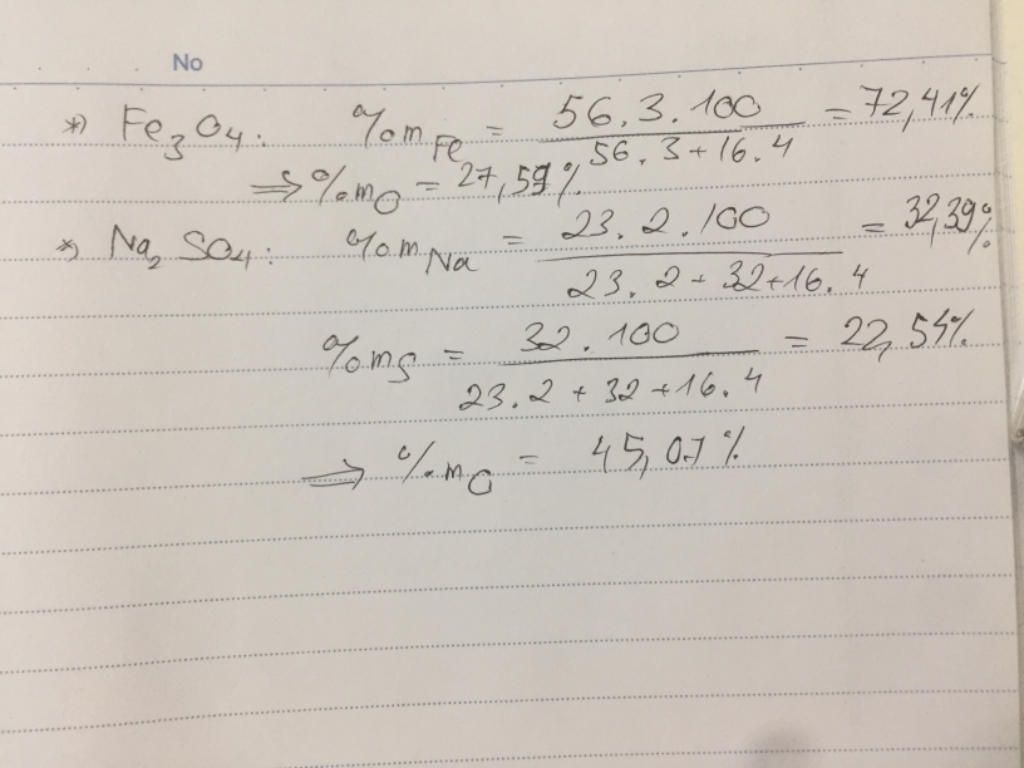 No
*) Fe3O4: %mFe = 56.3.100 / 56.3+16.4 = 72,41%
⇒ %mO = 27,59%
*) Na2SO4: %mNa = 23.2.100 / 23.2+32+16.4 = 32,39%
%mS = 32.100 / 23.2+32+16.4 = 22,54%
⇒ %mO = 45,07%